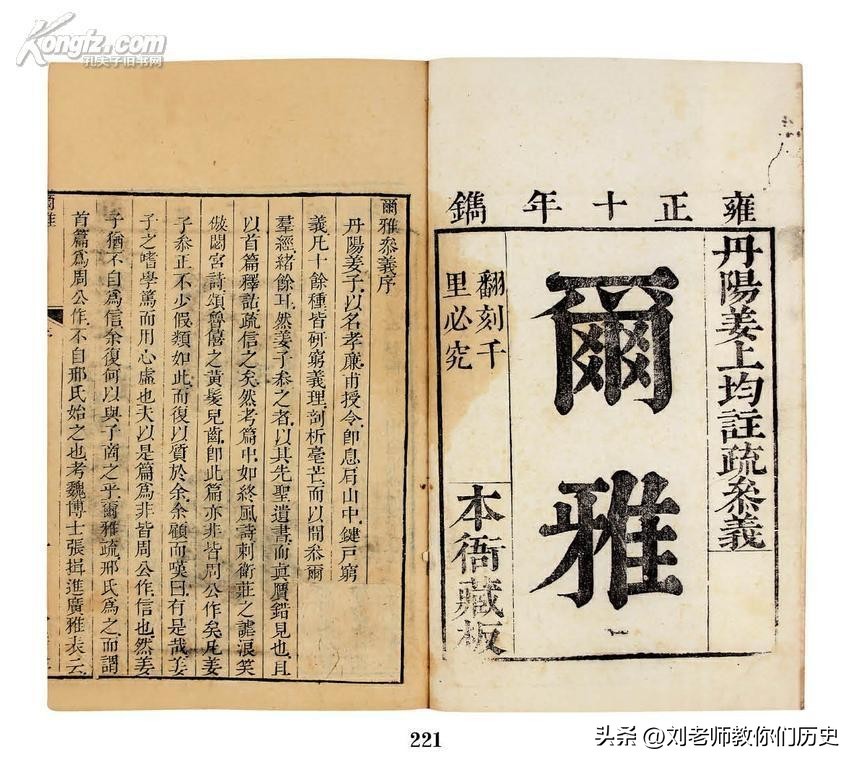 Kongfz.com
孔夫子旧书网
雍正十年鐫
丹陽姜上均註疏叅義
爾雅
翻刻千
里必究
本衙藏板
爾雅叅義序
丹陽姜子以名孝廉甫授令即息肩山中鍵戸窮
義凡十餘種皆硏窮義理剖析毫芒而以閒叅爾
羣經緒餘耳然姜子叅之者以其先聖遺書而真贋錯見也且
以首篇釋詁疏信之矣然考篇中如終風詩刺衛莊之謔浪笑
傲閟宫詩頌魯僖之黄髮兒齒即此篇亦非皆周公作矣凡姜
子叅正不少假類如此而復以質於余余顧而嘆曰有是哉姜
子之嗜學篤而用心虚也夫以是篇為非皆周公作信也然姜
子猶不自為信余復何以與子商之乎爾雅疏邢氏為之而謂
首篇為周公作不自邢氏始之也考魏博士張揖進廣雅表云
爾雅
221
头条 @刘老师教你们历史